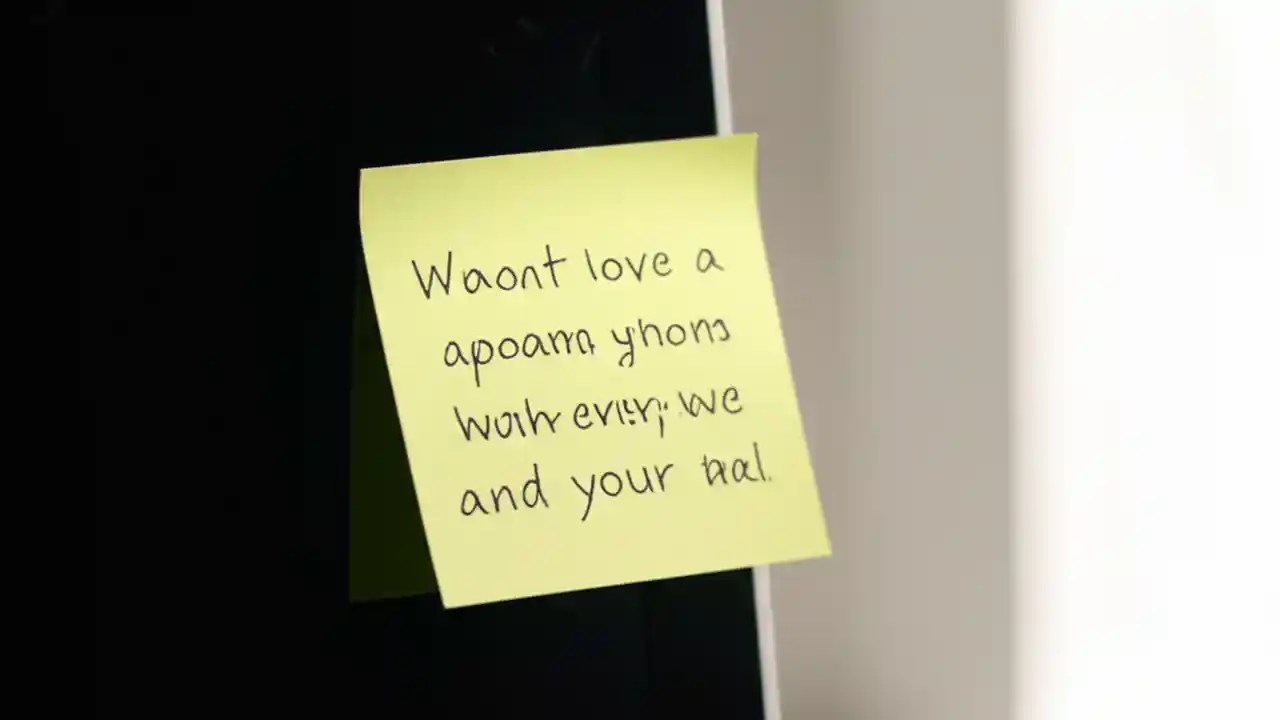 Waont love a
apoam yhons
wuh every we
and your